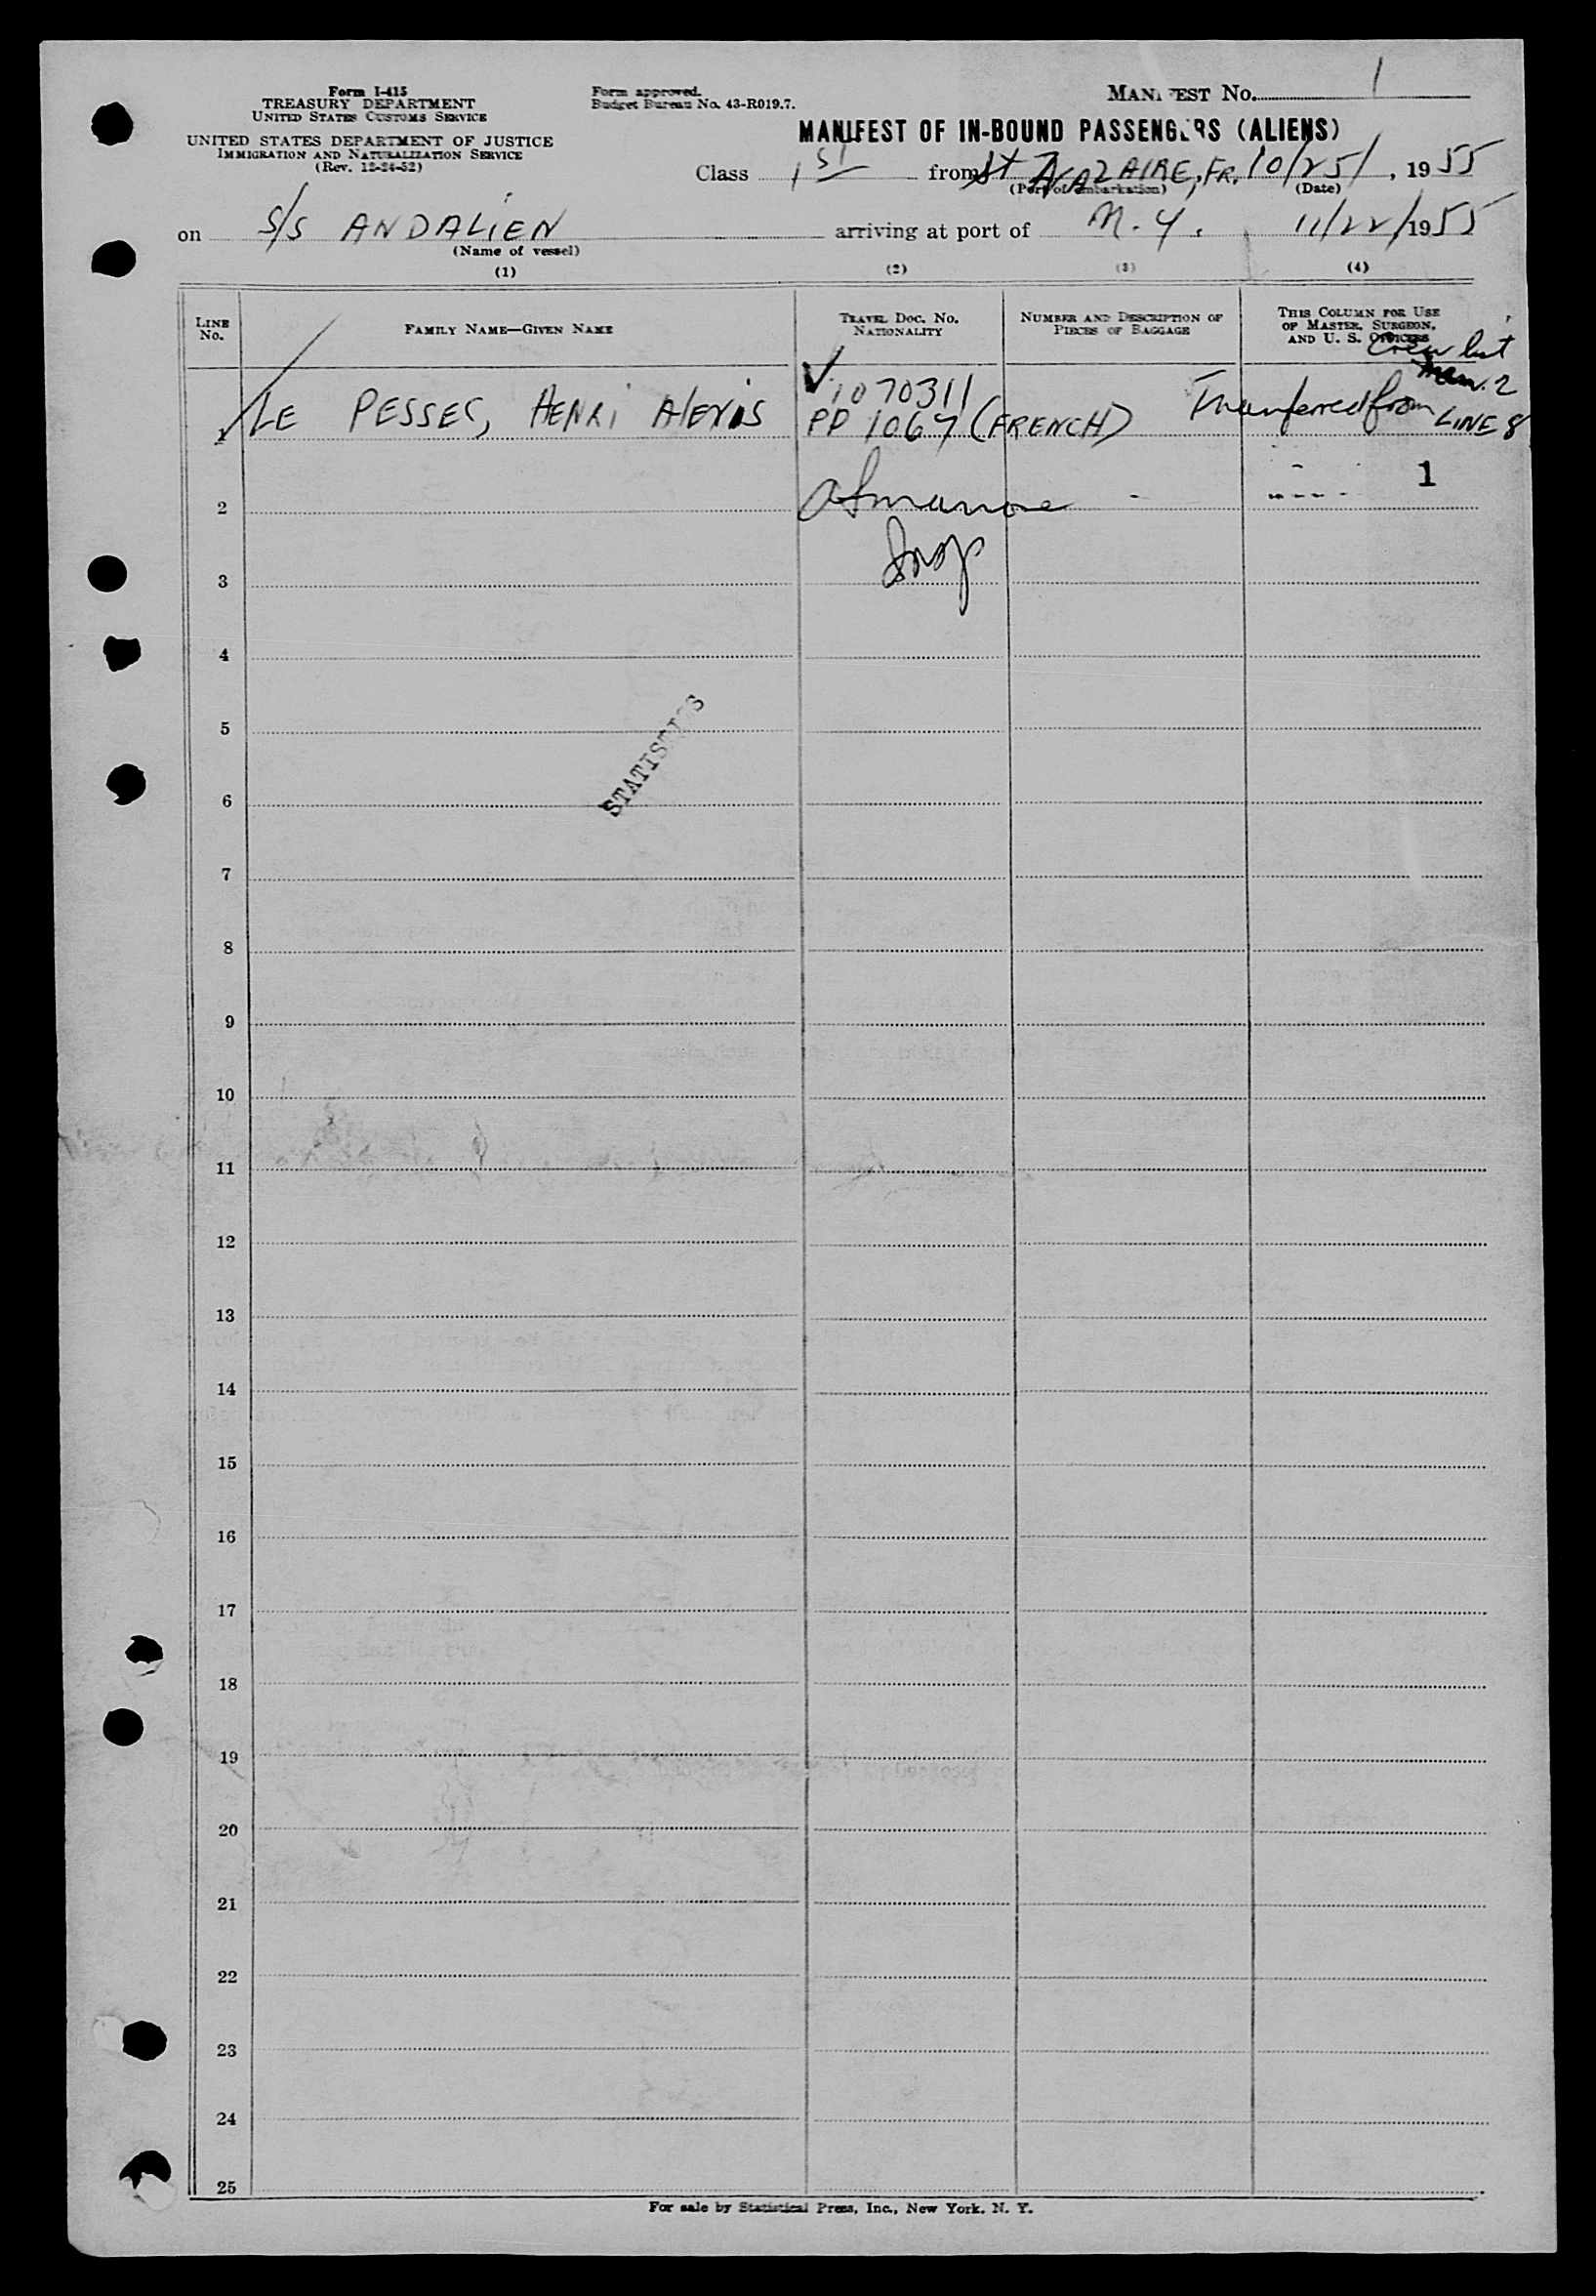 Form I-415
TREASURY DEPARTMENT
UNITED STATES CUSTOMS SERVICE
UNITED STATES DEPARTMENT OF JUSTICE
IMMIGRATION AND NATURALIZATION SERVICE
(Rev. 12-24-52)
Form approved.
Budget Bureau No. 43-R019.7.
MANIFEST No. 1
MANIFEST OF IN-BOUND PASSENGERS (ALIENS)
Class 1st from St NAZAIRE, FR. 10/25/, 1955
(Port of embarkation) (Date)
on S/S ANDALIEN arriving at port of N.Y. 11/22/1955
(Name of vessel)
(1) (2) (3) (4)
LINE No. FAMILY NAME—GIVEN NAME TRAVEL DOC. No. NATIONALITY NUMBER AND DESCRIPTION OF PIECES OF BAGGAGE THIS COLUMN FOR USE OF MASTER, SURGEON, AND U. S. OFFICERS
Crew list
Man. 2
V1070311
1 LE PESSEC, HENRI Alexis PP 1067 (FRENCH) Transferred from LINE 8
1
2
Insp
3
4
5
STATISTICS
6
7
8
9
10
11
12
13
14
15
16
17
18
19
20
21
22
23
24
25
For sale by Statistical Press, Inc., New York, N. Y.